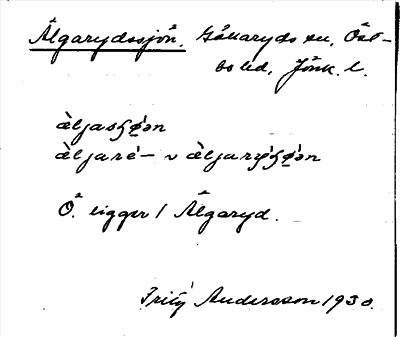 Älgarydssjön. Gällaryds sn, Öst-
bo hd, Jönk. l.
ä̀ljasɧø̀ən
ä̀ljaré- v ä̀ljarýɧø̀ən
Ö. ligger i Älgaryd.
Fritz Andersson 1930.